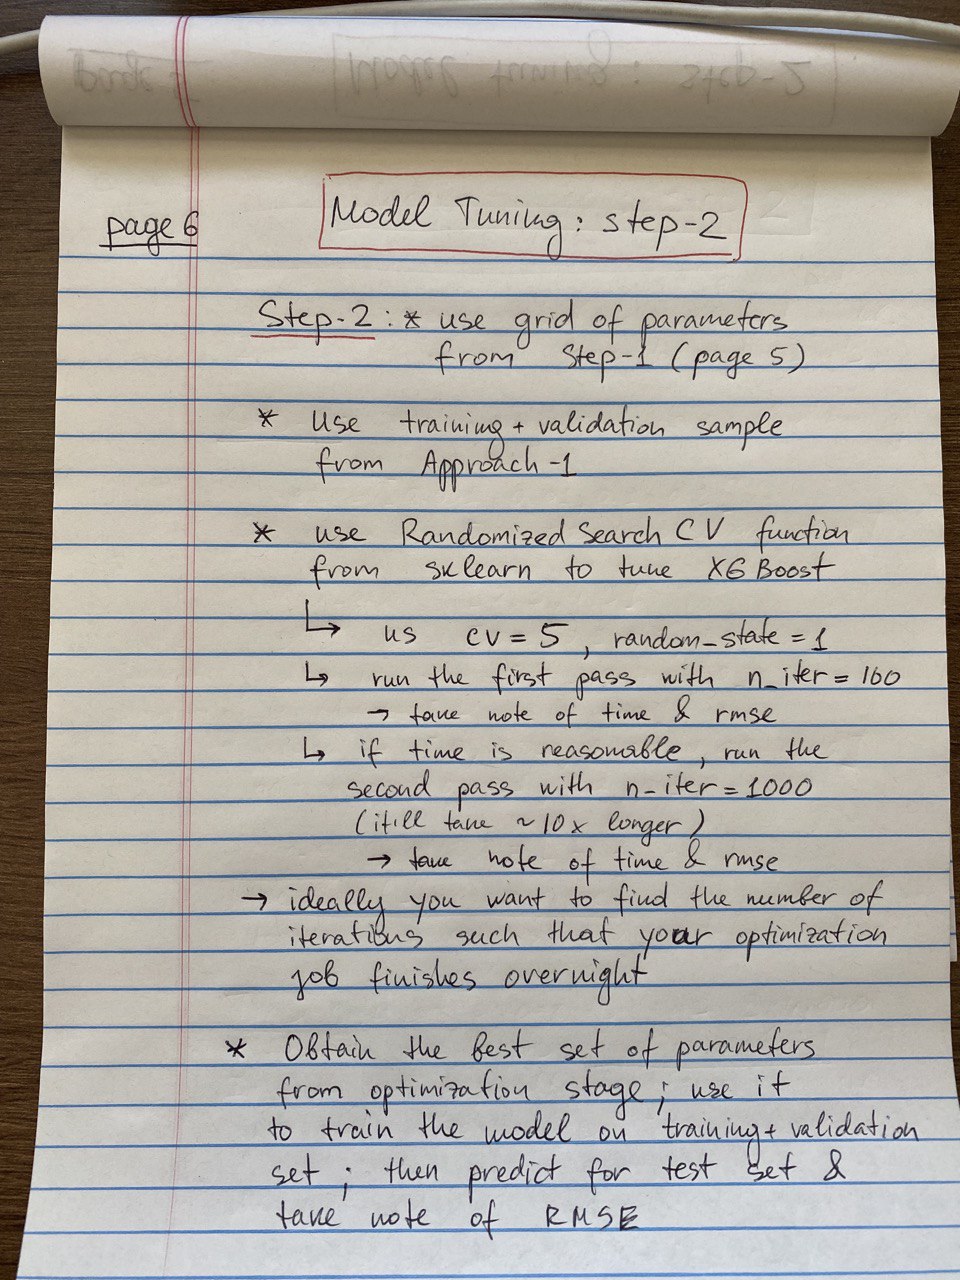 Model Tuning: step-2
page 6
Step-2: * use grid of parameters
from Step-1 (page 5)
* Use training + validation sample
from Approach-1
* use RandomizedSearchCV function
from sklearn to tune XGBoost
↳ us cv = 5, random_state = 1
↳ run the first pass with n_iter = 100
→ take note of time & rmse
↳ if time is reasonable, run the
second pass with n_iter = 1000
(it'll take ~10x longer)
→ take note of time & rmse
→ ideally you want to find the number of
iterations such that your optimization
job finishes overnight
* Obtain the best set of parameters
from optimization stage; use it
to train the model on training + validation
set; then predict for test set &
take note of RMSE